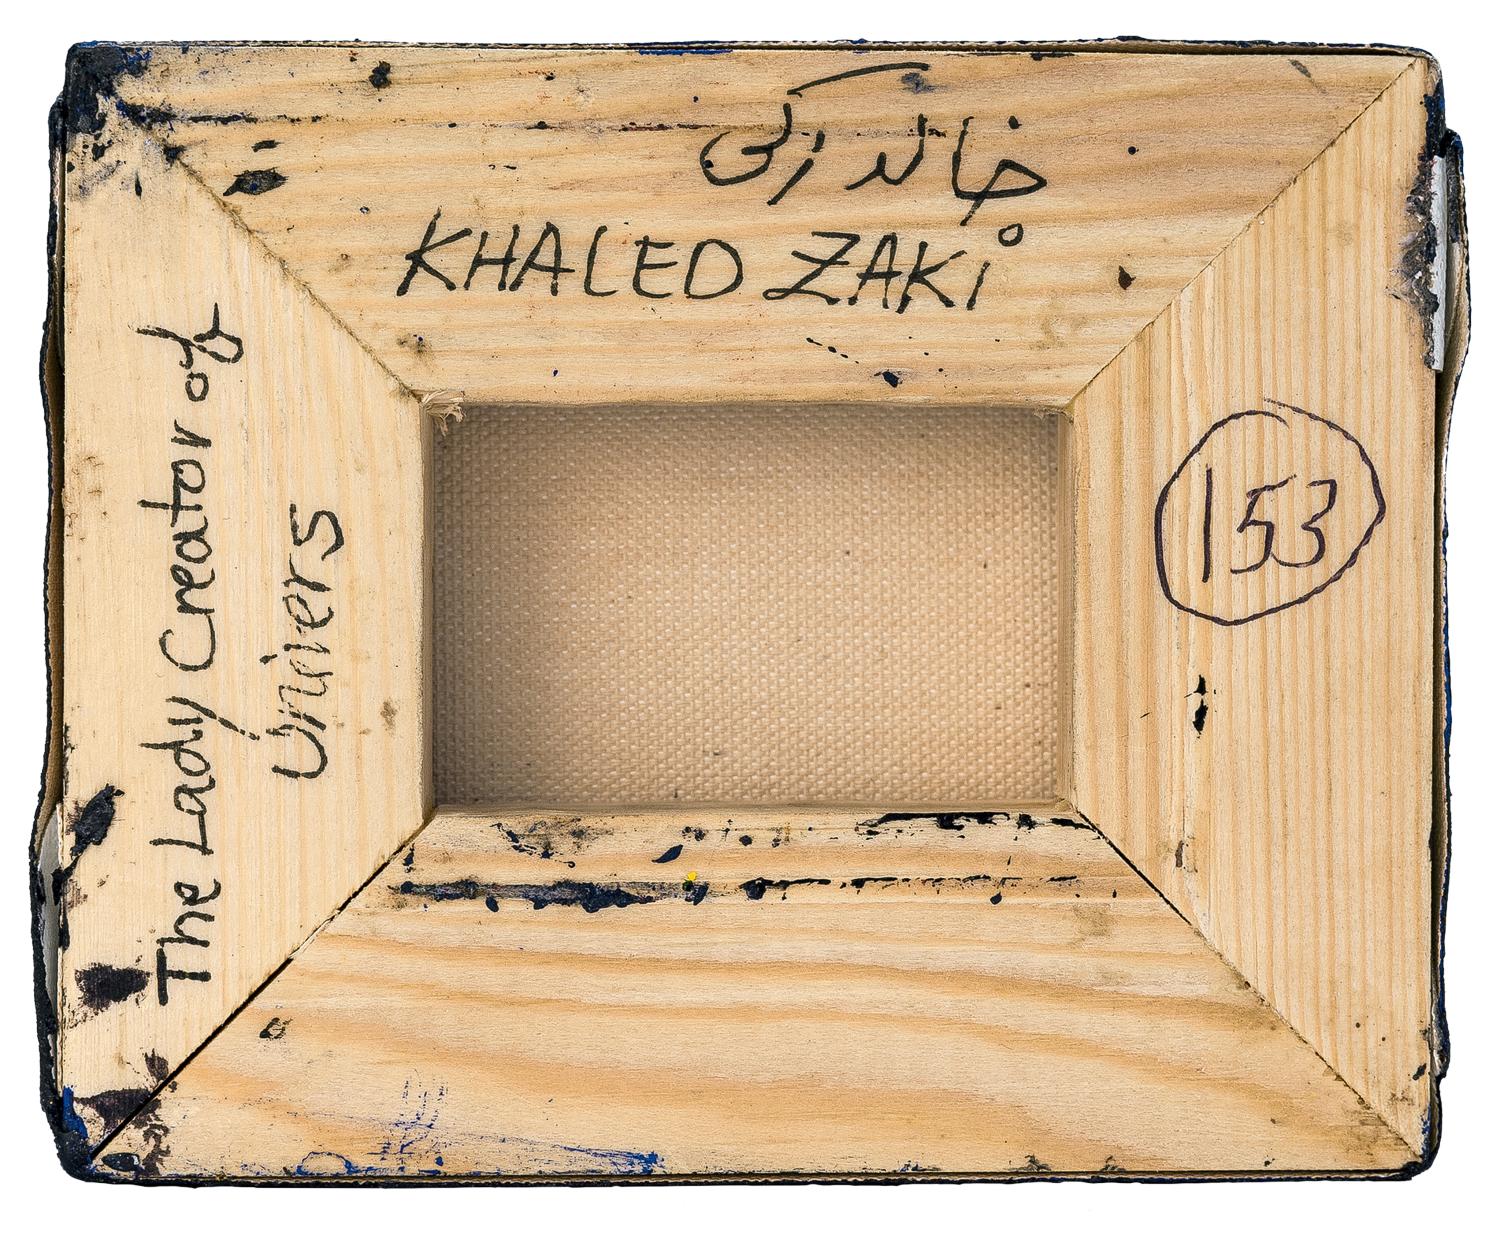 خالد زكي
KHALED ZAKi
The Lady Creator of
Univers
153